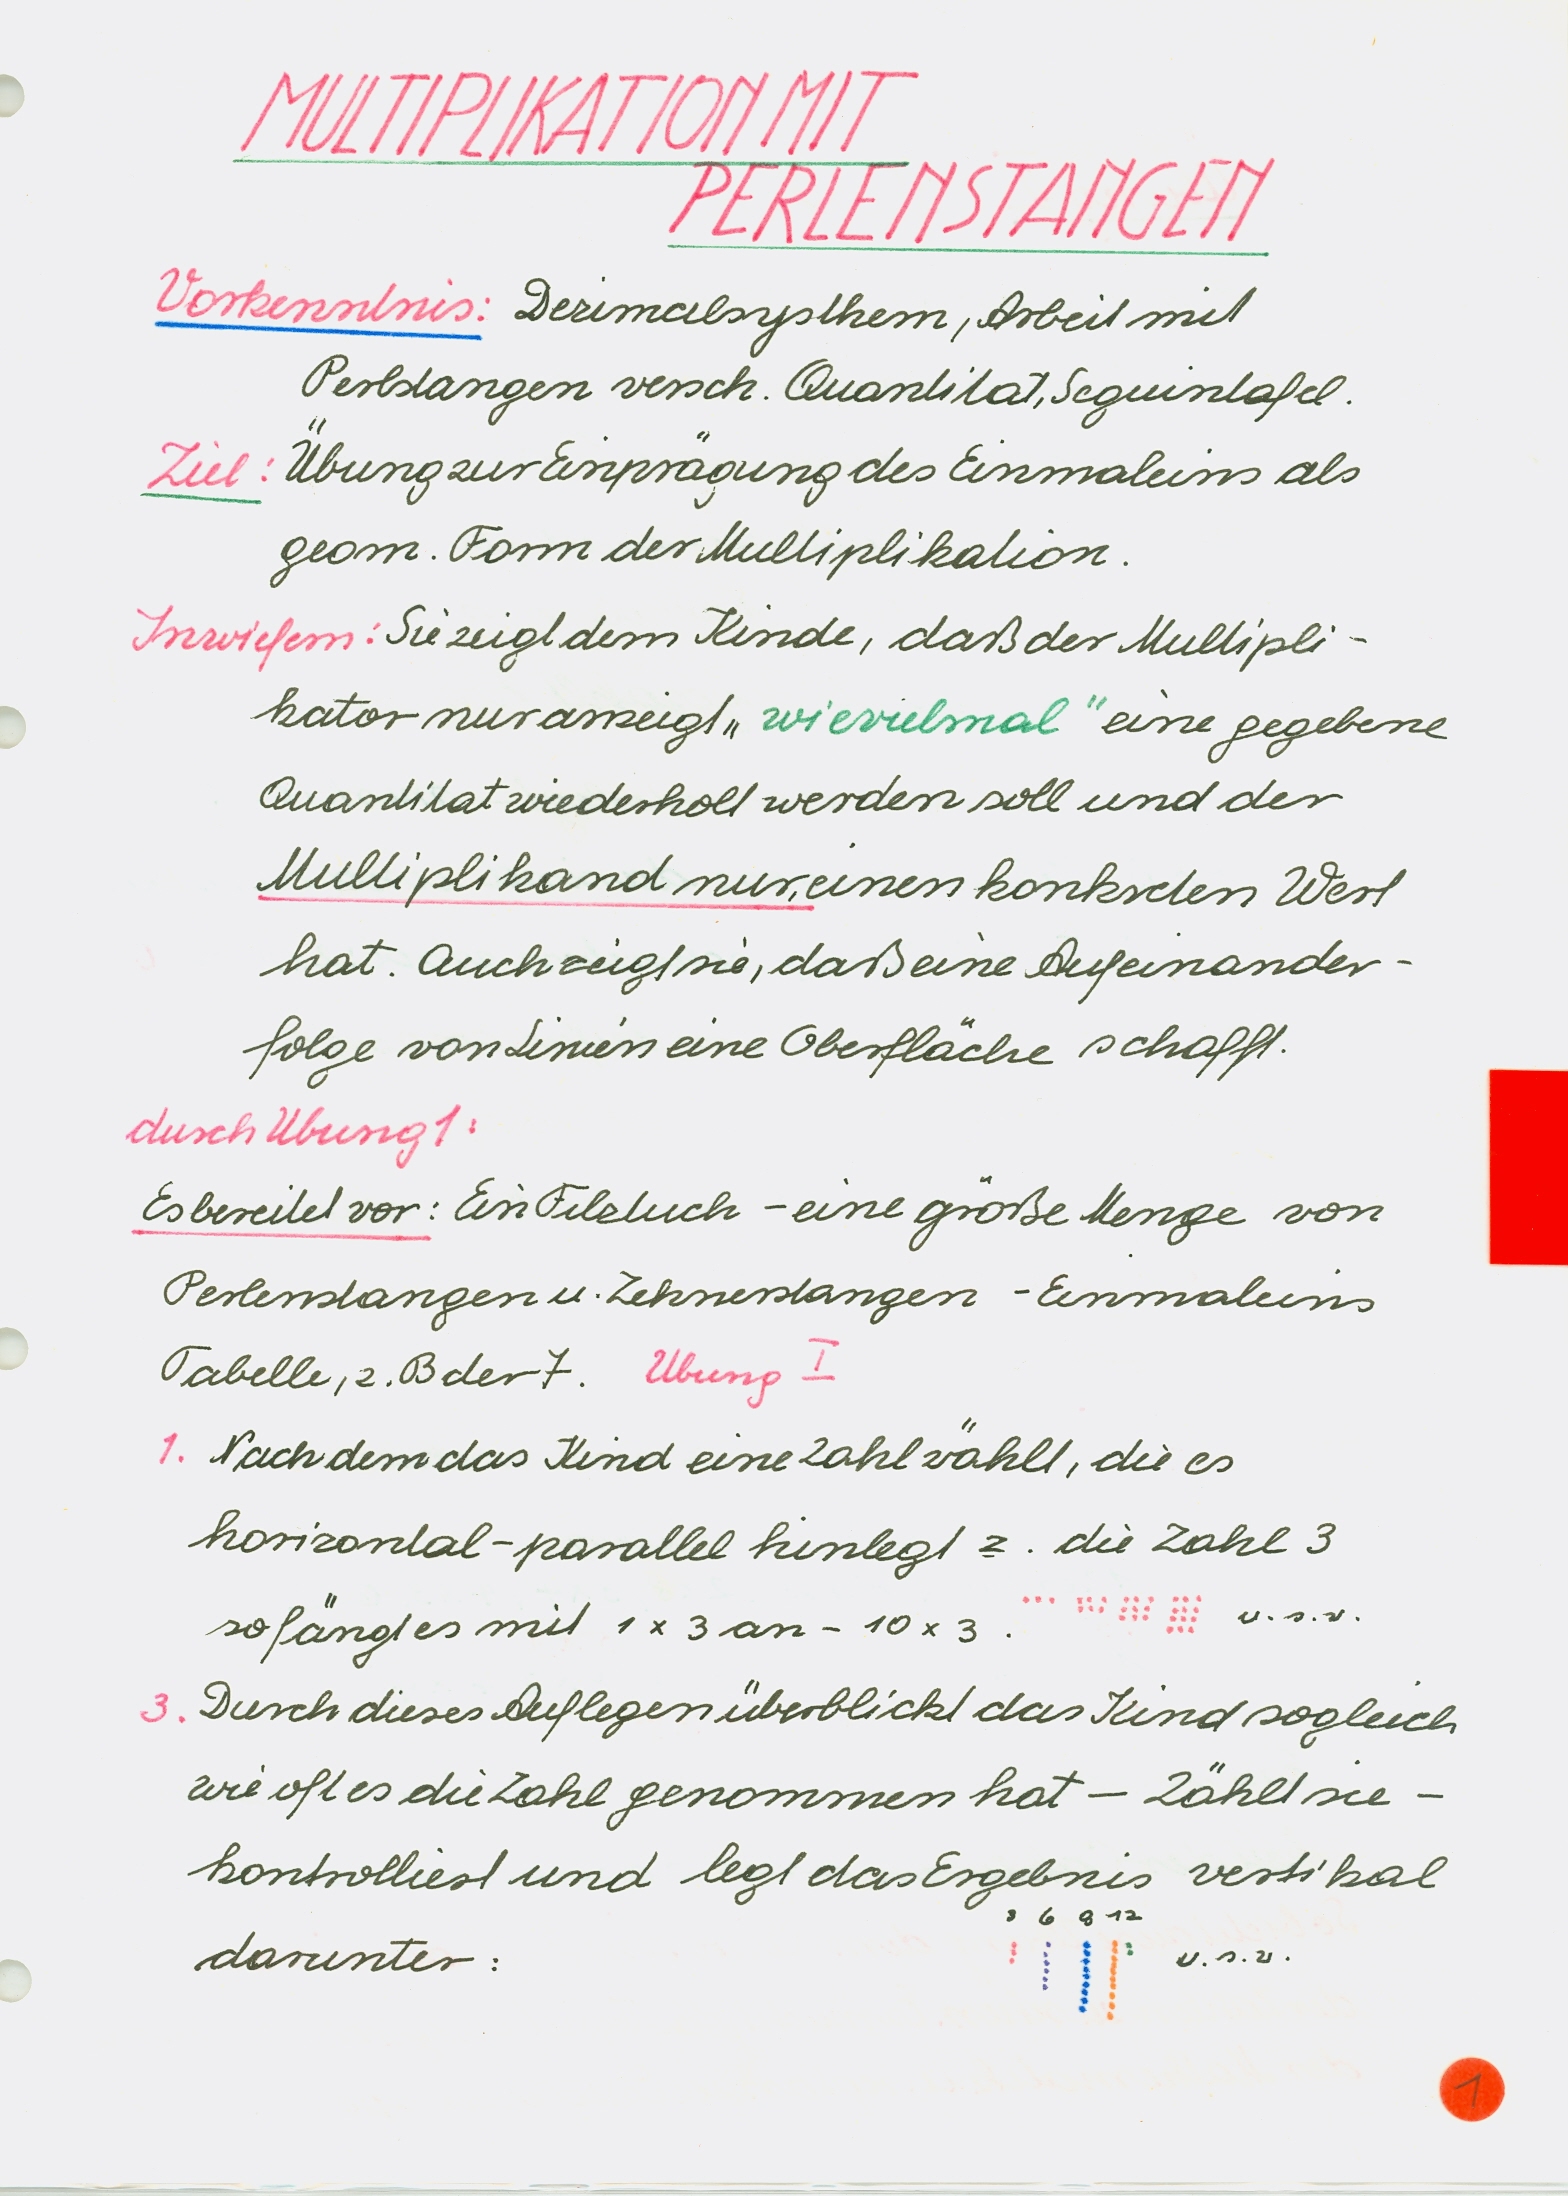 MULTIPLIKATION MIT
PERLENSTANGEN
Vorkenntnis: Dezimalsysthem, Arbeit mit
Perlstangen versch. Quantitat, Seguintafel.
Ziel: Übung zur Einprägung des Einmaleins als
geom. Form der Multiplikation.
Inwiefern: Sie zeigt dem Kinde, daß der Multipli-
kator nur anzeigt „wievielmal" eine gegebene
Quantitat wiederholt werden soll und der
Multiplikand nur, einen konkreten Wert
hat. Auch zeigt sie, daß eine Aufeinander-
folge von Linien eine Oberfläche schafft.
durch Übung 1:
Es bereitet vor: Ein Filztuch - eine größe Menge von
Perlenstangen u. Zehnerstangen - Einmaleins
Tabelle, z. B der 7. Übung I
1. Nachdem das Kind eine Zahl wählt, die es
horizontal-parallel hinlegt z. die Zahl 3
so fängt es mit 1 x 3 an - 10 x 3. u.s.w.
3. Durch dieses Auflegen überblickt das Kind sogleich
wie oft es die Zahl genommen hat - Zählt sie -
kontrolliert und legt das Ergebnis vertikal
3 6 9 12
darunter: u.s.w.
1